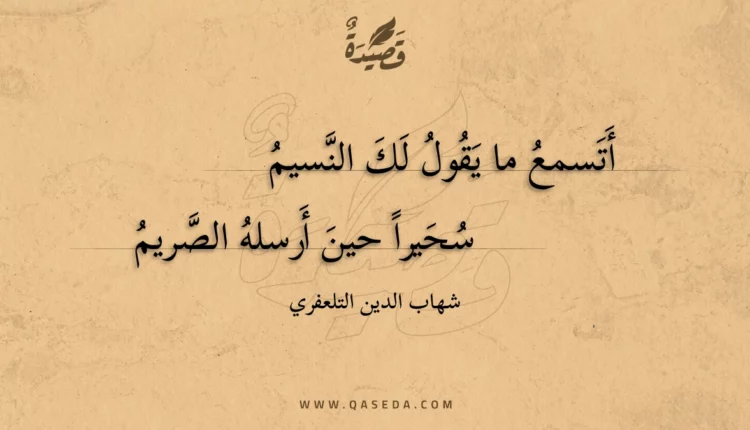 قَصِيدَةٌ
أَتَسمعُ ما يَقُولُ لَكَ النَّسيمُ
سُحَيراً حينَ أَرسلهُ الصَّريمُ
شهاب الدين التلعفري
WWW.QASEDA.COM